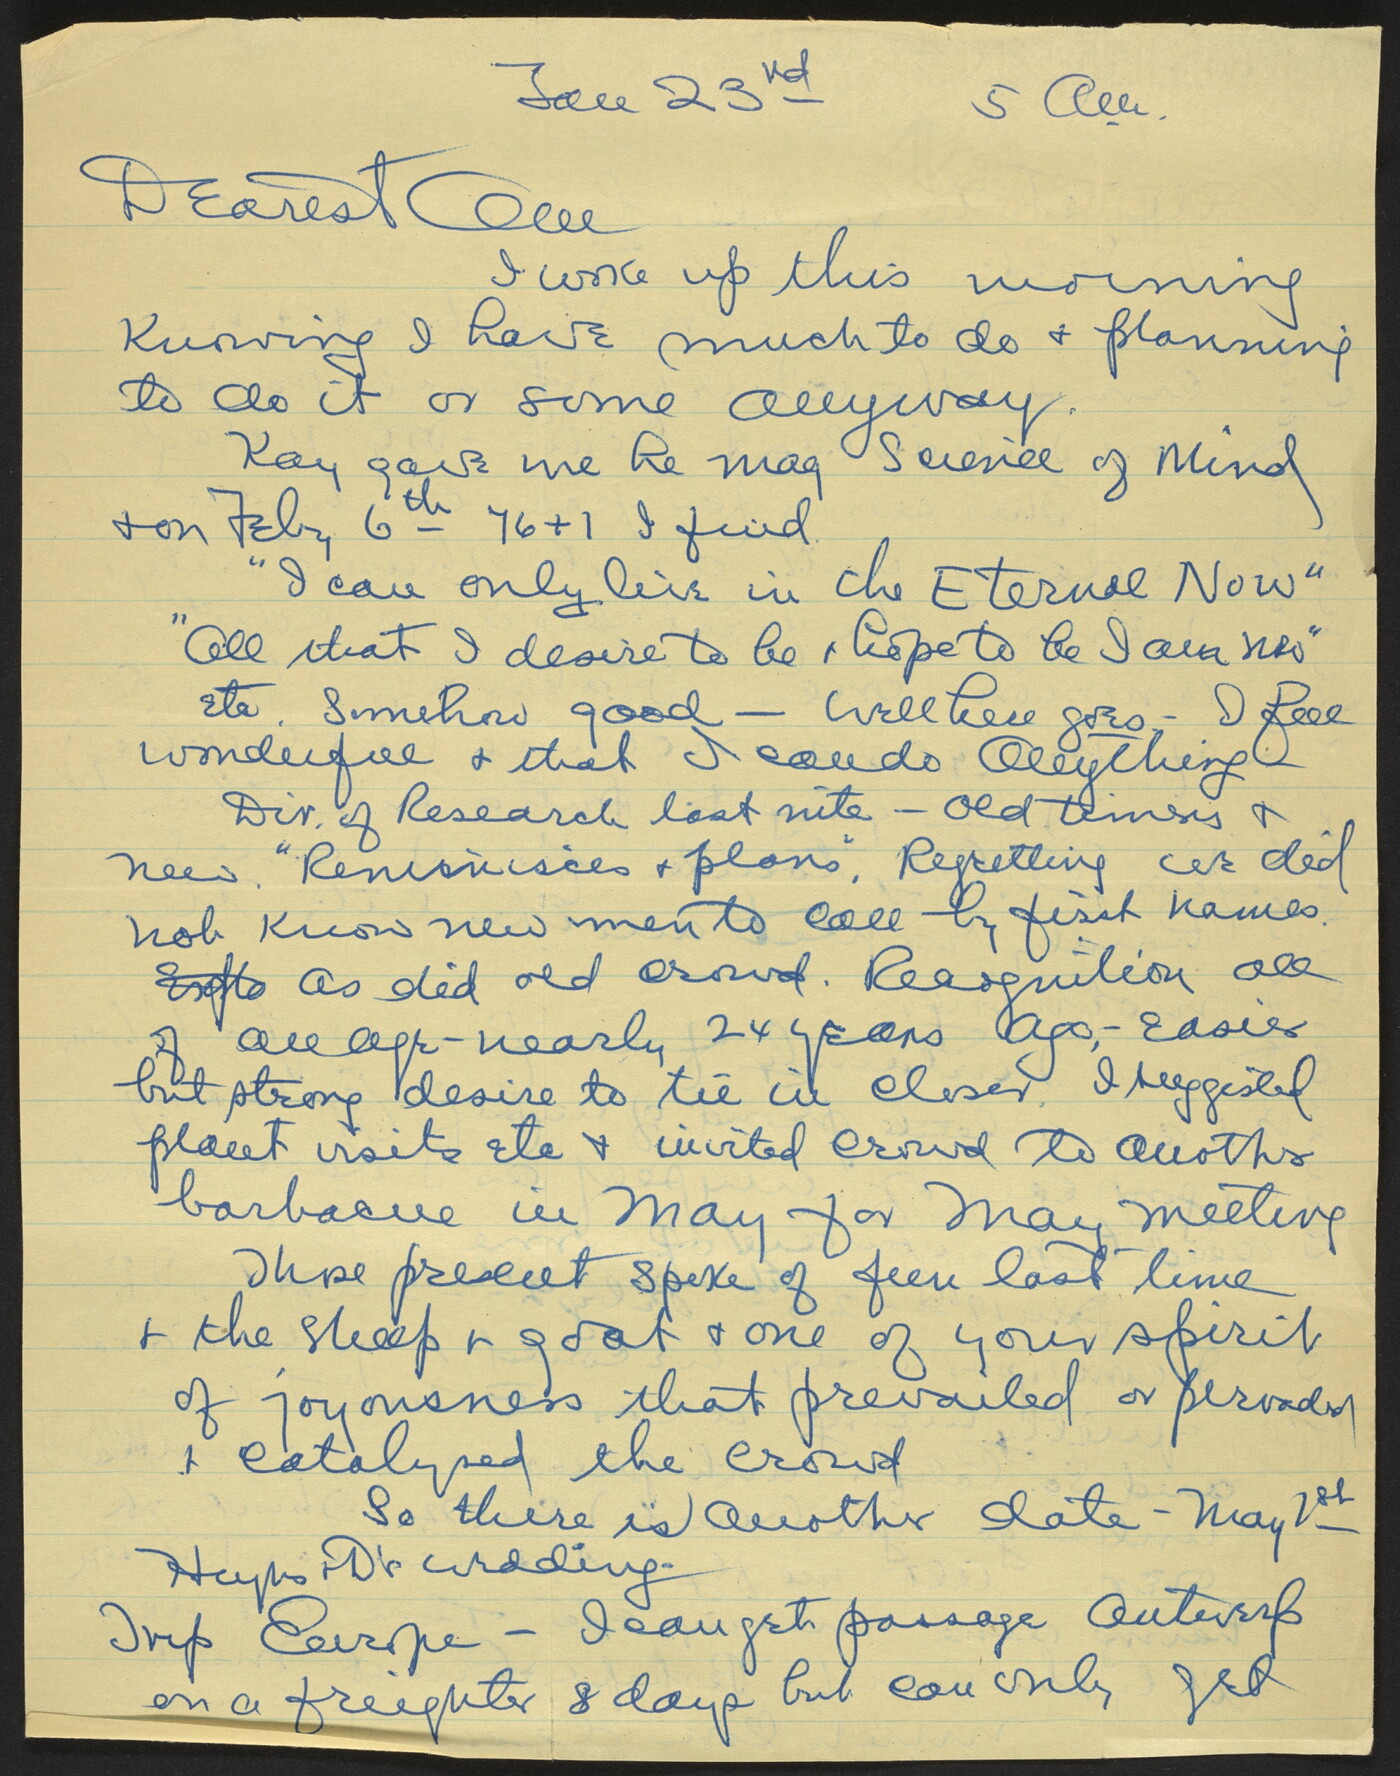 Jan 23rd 5 Am.
Dearest Ann
I woke up this morning
Knowing I have much to do + planning
to do it or some anyway.
Kay gave me he mag Science of Mind
+ on Feby 6th 76+1 I find
"I can only live in the Eternal Now"
"All that I desire to be + hope to be I am now"
Etc. Somehow good — Well here goes - I feel
wonderful + that I can do Anything
Div. of Research last nite - old timers +
new. "Reminisces + plans". Regretting we did
not know new men to call by first names.
as did old crowd. Recognition all
of an age - nearly 24 years ago, - Easier
but strong desire to tie in closer. I suggested
plant visits etc + invited crowd to another
barbacue in May for May meeting
Those present spoke of fun last time
+ the sheep + goat + one of your spirit
of joyousness that prevailed or pervaded
+ catalysed the crowd
So there is another date - May 1st
+ D's wedding.
Trip Europe - I can get passage Antwerp
on a freighter 8 days but can only get